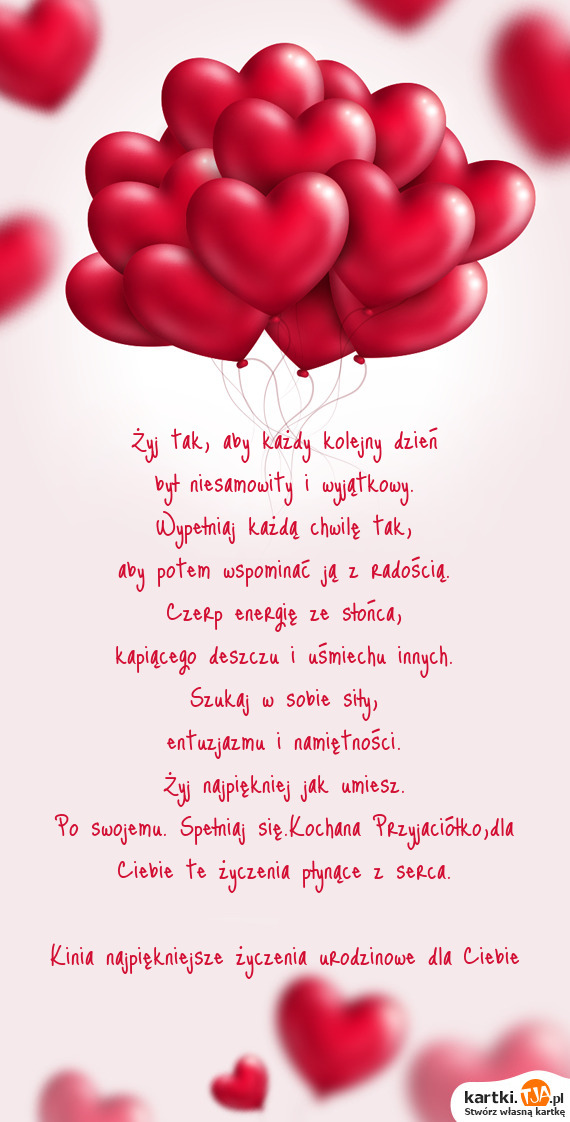 Żyj tak, aby każdy kolejny dzień
był niesamowity i wyjątkowy.
Wypełniaj każdą chwilę tak,
aby potem wspominać ją z radością.
Czerp energię ze słońca,
kapiącego deszczu i uśmiechu innych.
Szukaj w sobie siły,
entuzjazmu i namiętności.
Żyj najpiękniej jak umiesz.
Po swojemu. Spełniaj się.Kochana Przyjaciółko,dla
Ciebie te życzenia płynące z serca.
Kinia najpiękniejsze życzenia urodzinowe dla Ciebie
kartki.TJA.pl
Stwórz własną kartkę